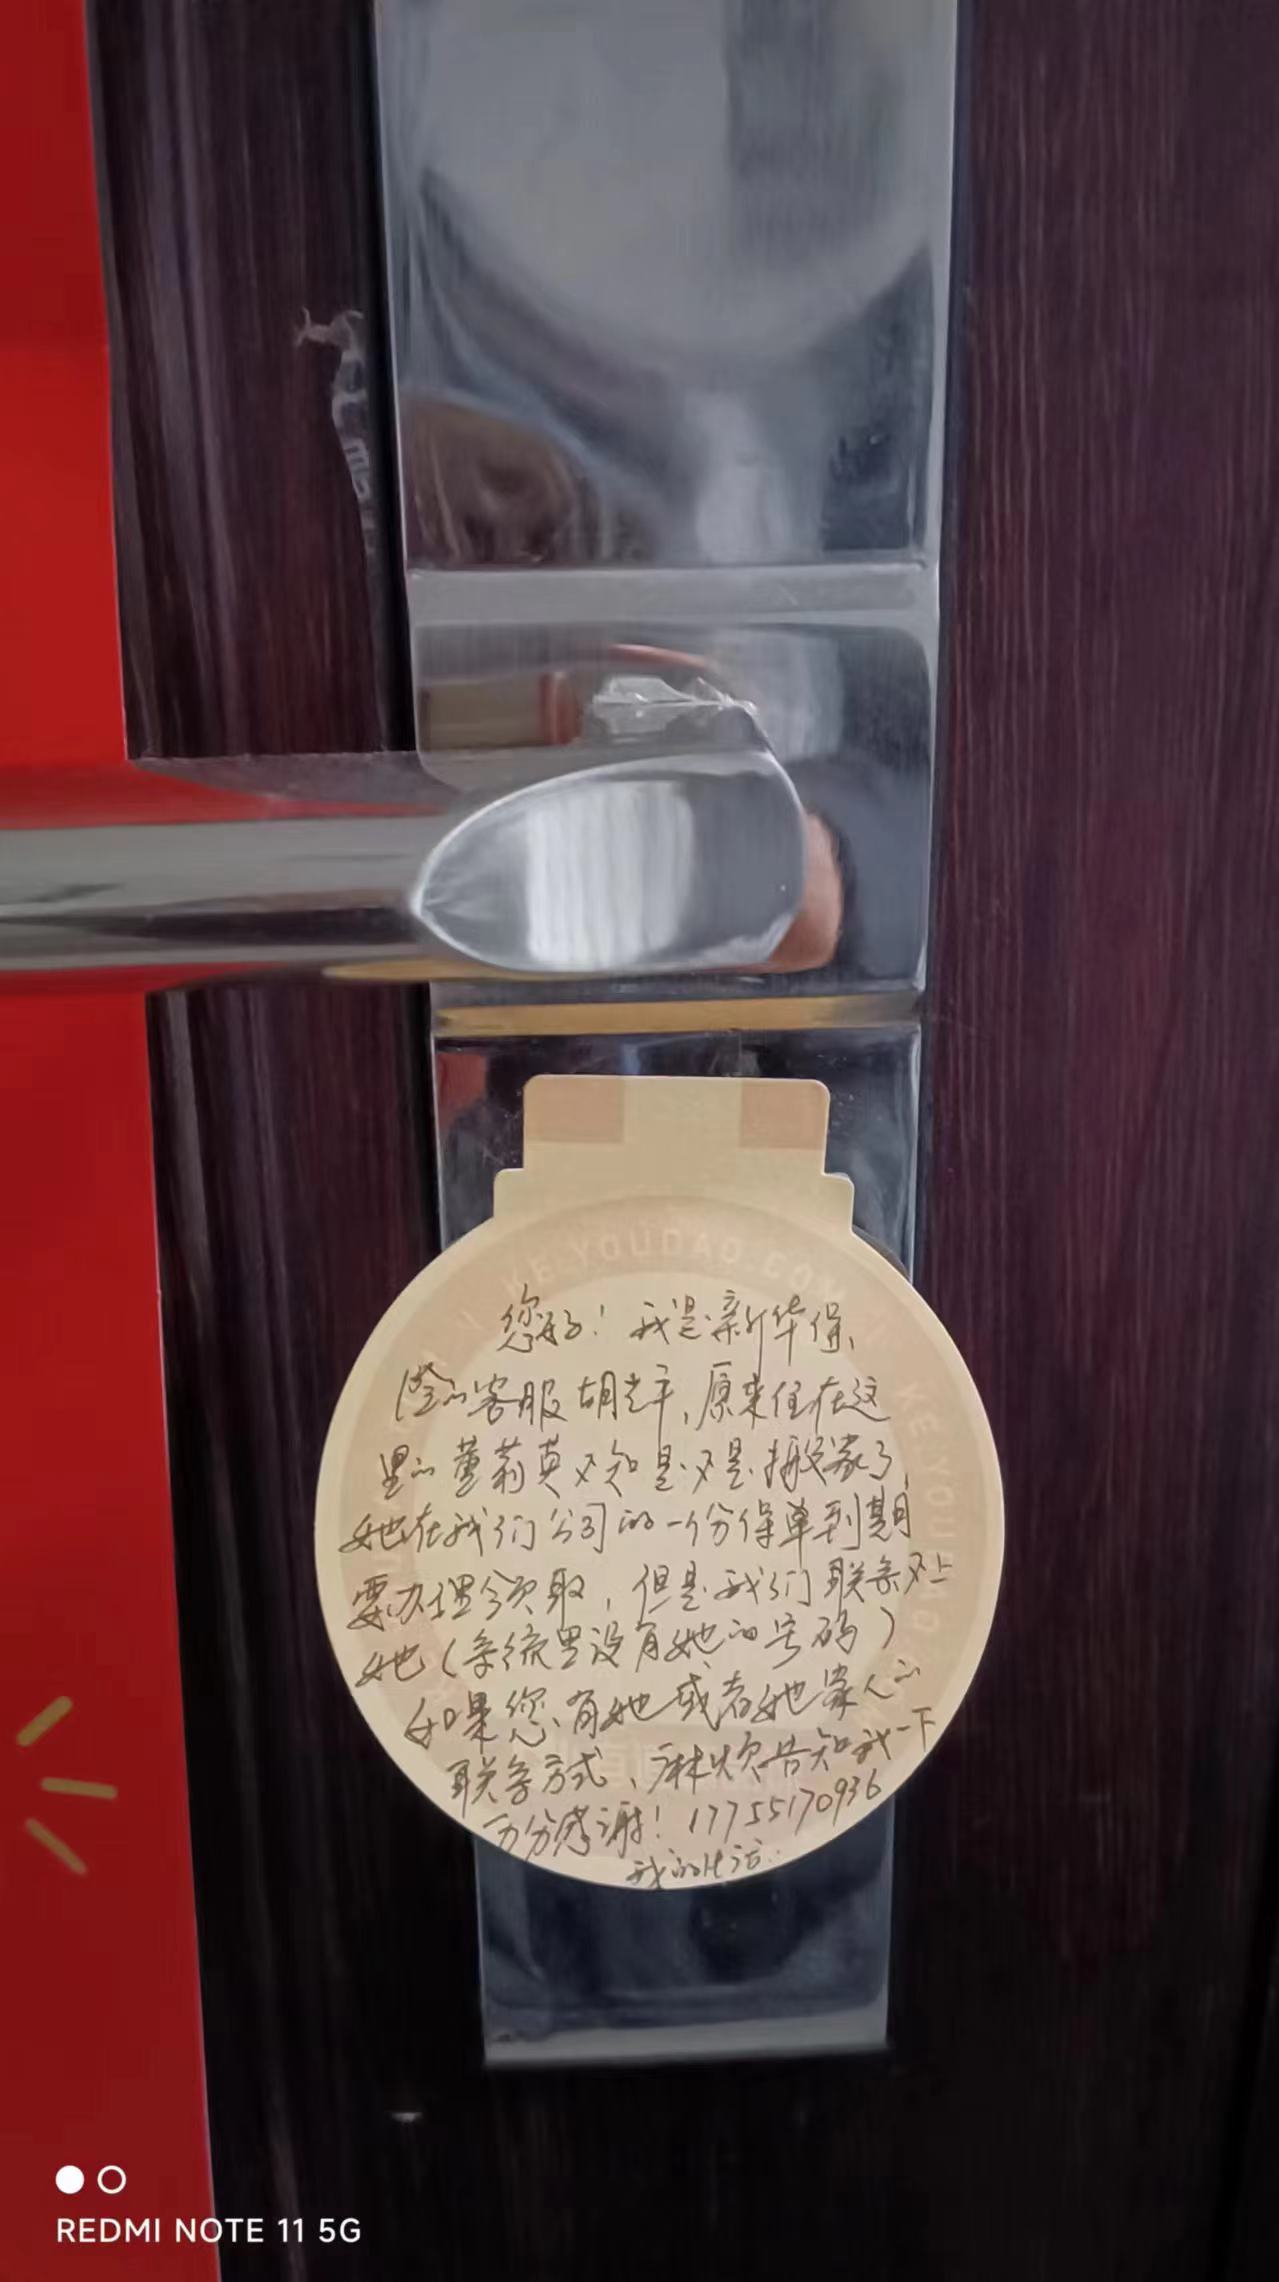 KE.YOUDAO.COM
KE.YOUDAO
您好！我是新华保
险的客服胡光平，原来住在这
里的董莉英不知是不是搬家了，
她在我们公司的一份保单到期
要办理领取，但是我们联系不上
她（系统里没有她的号码）
如果您有她或者她家人的
联系方式、麻烦告知我一下
万分感谢！17755170936
我的电话
REDMI NOTE 11 5G